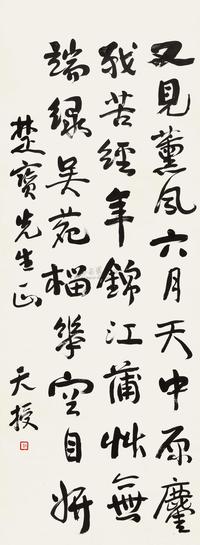 又見薰風六月天中原鏖
戰苦經年錦江蒲艸無
端綠吳苑榴花空自妍
楚寶先生正
天授